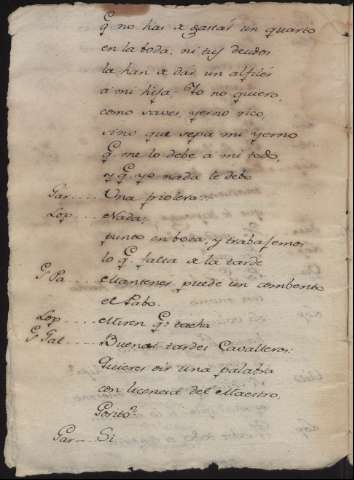 q̃ no has de gastar un quarto
en la boda, ni tus deudos
la han de dar un alfiler
a mi hija: Yo no quiero,
como saves, yerno rico,
sino que sepa mi yerno
q̃ me lo debe a mi todo,
y q̃ yo nada le debo
Par.... Una friolera.
Lop.... Nada;
punto en boda, y trabajemos
lo q̃ falta de la tarde
Mantener puede un combento
el Pabo.
Lop.... Miren q̃ tacha
Buenas tardes Cavalleros:
Quieres oir una palabra
con licencia del Maestro,
Par.... Si